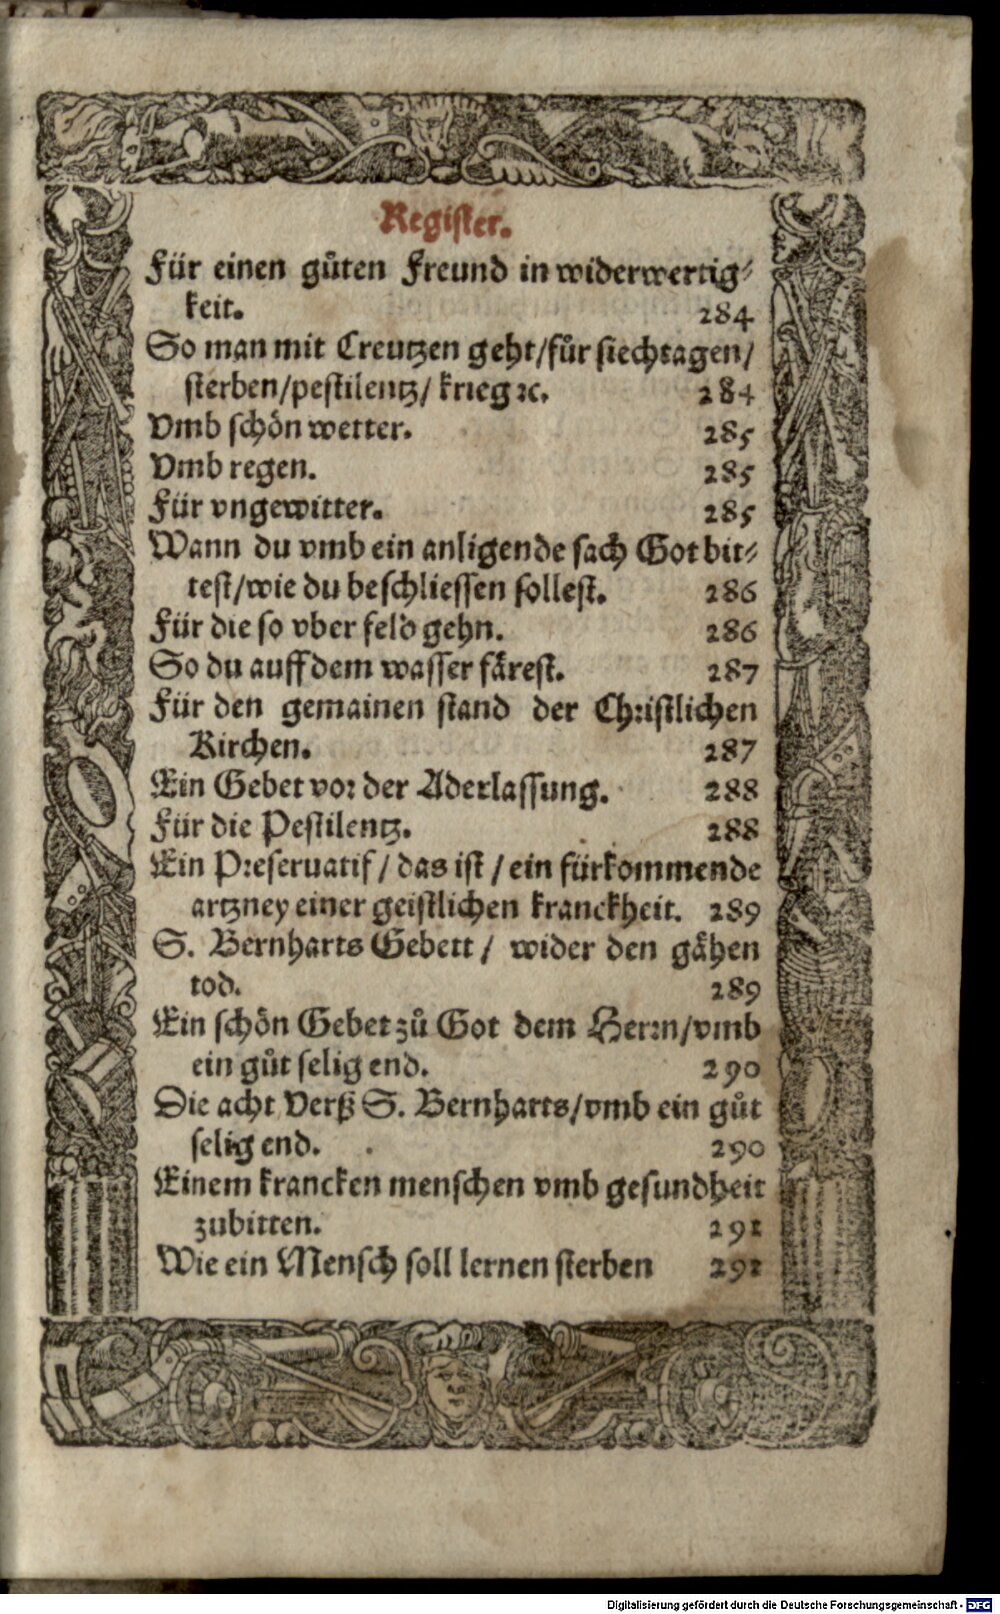 Register.
Für einen gůten Freund in widerwertig⸗
keit. 284
So man mit Creutzen geht/für siechtagen/
sterben/pestilentz/ krieg ꝛc. 284
Vmb schön wetter. 285
Vmb regen. 285
Für vngewitter. 285
Wann du vmb ein anligende sach Got bit⸗
test/wie du beschliessen sollest. 286
Für die so vber feld gehn. 286
So du auff dem wasser fårest. 287
Für den gemainen stand der Christlichen
Kirchen. 287
Ein Gebet vor der Aderlassung. 288
Für die Pestilentz. 288
Ein Preseruatif / das ist / ein fürkommende
artzney einer geistlichen kranckheit. 289
S. Bernharts Gebett / wider den gåhen
tod. 289
Ein schön Gebet zů Got dem Herrn/vmb
ein gůt selig end. 290
Die acht Verß S. Bernharts/vmb ein gůt
selig end. 290
Einem krancken menschen vmb gesundheit
zubitten. 291
Wie ein Mensch soll lernen sterben 291
Digitalisierung gefördert durch die Deutsche Forschungsgemeinschaft - DFG